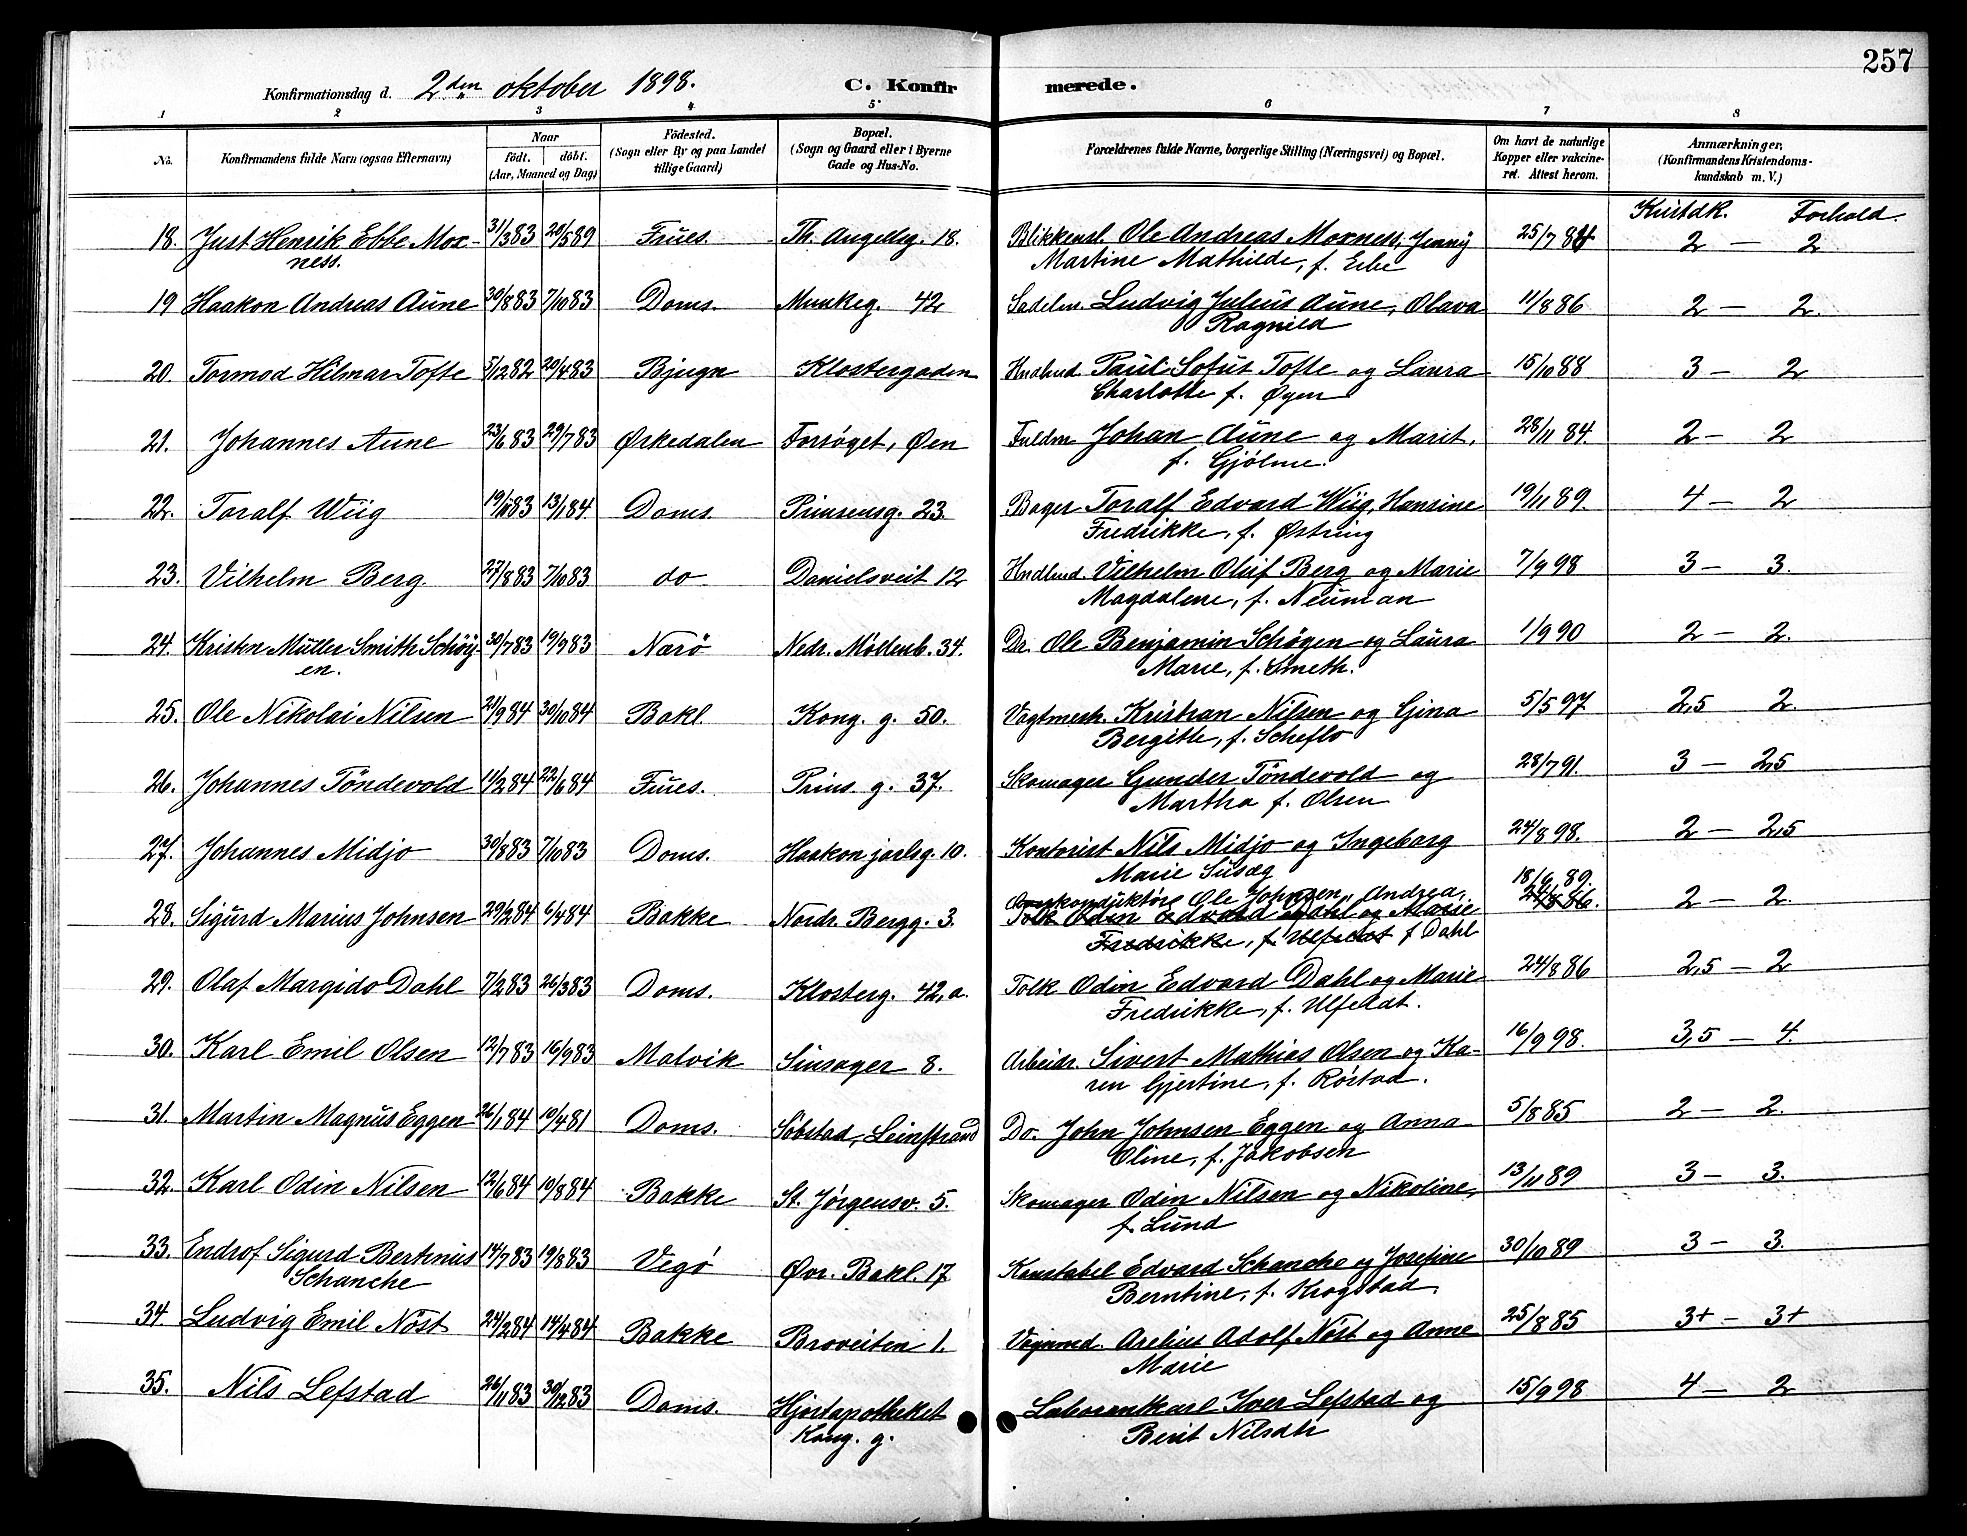 257
Konfirmationsdag d. 2den oktober 1898. C. Konfirmerede.
1 2 3 4 5 6 7 8
No. Konfirmandens fulde Navn (ogsaa Efternavn) Naar födt. döbt. (Aar, Maaned og Dag) Födested. (Sogn eller By og paa Landet tillige Gaard) Bopæl. (Sogn og Gaard eller i Byerne Gade og Hus-No. Forældrenes fulde Navne, borgerlige Stilling (Næringsvei) og Bopæl. Om havt de naturlige Kopper eller vakcineret. Attest herom. Anmærkninger. (Konfirmandens Kristendomskundskab m. V.)
Kristdk. Forhold.
18. Just Henrik Ebbe Mox- 31/3 83 20/5 89 Frues. Th. Angellsg. 18. Blikkensl. Ole Andreas Moxness, Jenny 25/7 84 2 — 2
ness. Martine Mathilde, f. Ebbe
19 Haakon Andreas Aune 30/8 83 7/10 83 Doms. Munkeg. 42 Sadelm. Ludvig Julius Aune, Olava 11/8 86 2 — 2.
Ragnild
20. Tormod Hilmar Tofte 5/12 82 29/4 83 Bjugn Klostergaden Paul Sofus Tofte og Laura 15/10 88 3 — 2
Charlotte f. Øyen
21. Johannes Aune 23/6 83 29/7 83 Ørkedalen Forsøget, Øen Fuldm Johan Aune og Marit, 28/11 84. 2 — 2
f. Gjölme.
22. Toralf Wiig 19/11 83 13/1 84 Doms. Prinsensg. 23. Bager Toralf Edvard Wiig, Hansine 19/11 89. 4 — 2
Fredrikke, f. Østring
23. Vilhelm Berg 27/8 83 7/10 83 do Danielsveit 12 Hndlend. Vilhelm Oluf Berg og Marie 7/9 98 3 — 3.
Magdalene, f. Neuman
24. Kristen Müller Smith Schöy- 30/7 83 19/9 83 Nærö Nedr. Møllenb. 34. Dr. Ole Benjamin Schögen og Laura 1/9 90 2 — 2.
en. Marie, f. Smeth.
25. Ole Nikolai Nilsen 21/9 84 30/10 84 Bakl. Kong. g. 50. Vagtmest. Kristian Nilsen og Gina 5/5 97 2,5 2.
Bergitte, f. Scheflo
26. Johannes Töndevold 11/2 84 22/6 84 Frues. Prins. g. 37. Skomager Gunder Töndevold og 28/7 91. 3 — 2,5
Martha f. Olsen
27. Johannes Midjo 30/8 83 7/10 83 Doms. Haakon jarlsg. 10. Kontorist Nils Midjo og Ingeborg 24/8 98. 2 — 2,5
Marie Susæg
konduktör Ole Johnsen, Andrea, 18/6 89.
28. Sigurd Marius Johnsen 29/2 84 6/4 84 Bakke Nordr. Bergg. 3. Tolk Odin Edvard Dahl og Marie 24/8 86. 2 — 2.
Fredrikke, f. Ulfedat f Dahl
29. Olaf Margido Dahl 7/2 83 26/3 83 Doms. Klosterg. 42, a. Tolk Odin Edvard Dahl og Marie 24/8 86 2,5 — 2
Fredrikke, f. Ulfedat.
30. Karl Emil Olsen 12/7 83 16/9 83 Malvik Sinsager 8. Arbeidr. Sivert Mathias Olsen og Ka- 16/9 98. 3,5 — 4.
ren Gjertine, f. Röstad.
31. Martin Magnus Eggen 26/1 84 10/4 81 Doms. Söbstad, Leinstrand Do. John Johnsen Eggen og Anna 5/8 85 2 — 2.
Oline, f. Jakobsen
32. Karl Odin Nilsen 12/6 84 10/8 84 Bakke St. Jørgensv. 5. Skomager Odin Nilsen og Nikoline, 13/11 89 3 — 3.
f. Lund
33. Endrof Sigurd Bertinus 14/7 83 19/8 83 Vegö Øvr. Bakl. 17 Konstabel Edvard Schanche og Josefine 30/10 89 3 — 3.
Schanche Berntine, f. Krogstad.
34 Ludvig Emil Nöst 24/2 84 14/4 84 Bakke Broveiten 1. Vognmd. Arelius Adolf Nöst og Anne 25/8 85 3+ — 3+
Marie
35. Nils Lefstad 26/11 83 30/12 83 Doms. Hjortapotheket Laborantkarl Iver Lefstad og 15/9 98 4 — 2
Kong. g. Berit Nilsdtr